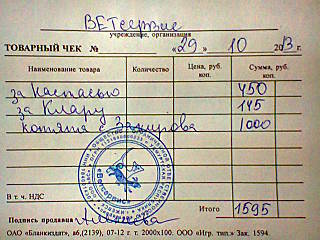 ВЕТсервис
учреждение, организация
ТОВАРНЫЙ ЧЕК № «29» 10 2013 г.
Наименование товара Количество Цена, руб. коп. Сумма, руб. коп.
за Каспаево 450
за Клару 145
котята с Заирова 1000
В т. ч. НДС
Итого 1595
Подпись продавца
ОАО «Бланкиздат», а6,(2139), 07-12 г. т. 2000х100. ООО «Игр. тип.» Зак. 1594.